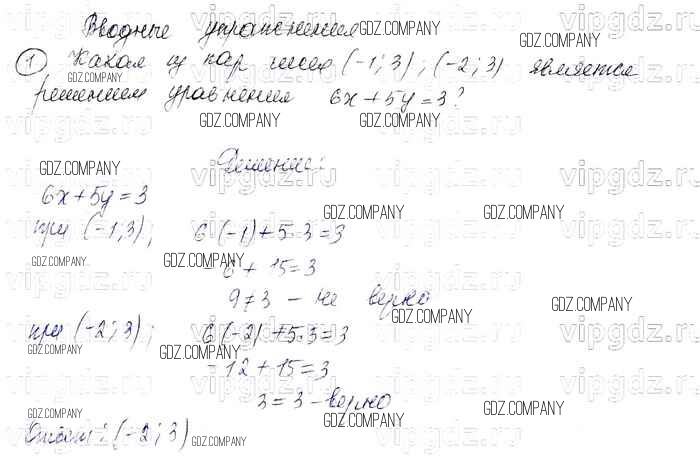 Вводные упражнения
① Какая из пар чисел (-1; 3); (-2; 3) является
решением уравнения 6x + 5y = 3?
Решение:
6x + 5y = 3
при (-1; 3); 6(-1) + 5·3 = 3
-6 + 15 = 3
9 ≠ 3 - не верно
при (-2; 3); 6(-2) + 5·3 = 3
-12 + 15 = 3
3 = 3 - верно
Ответ: (-2; 3)
GDZ.COMPANY
vipgdz.ru